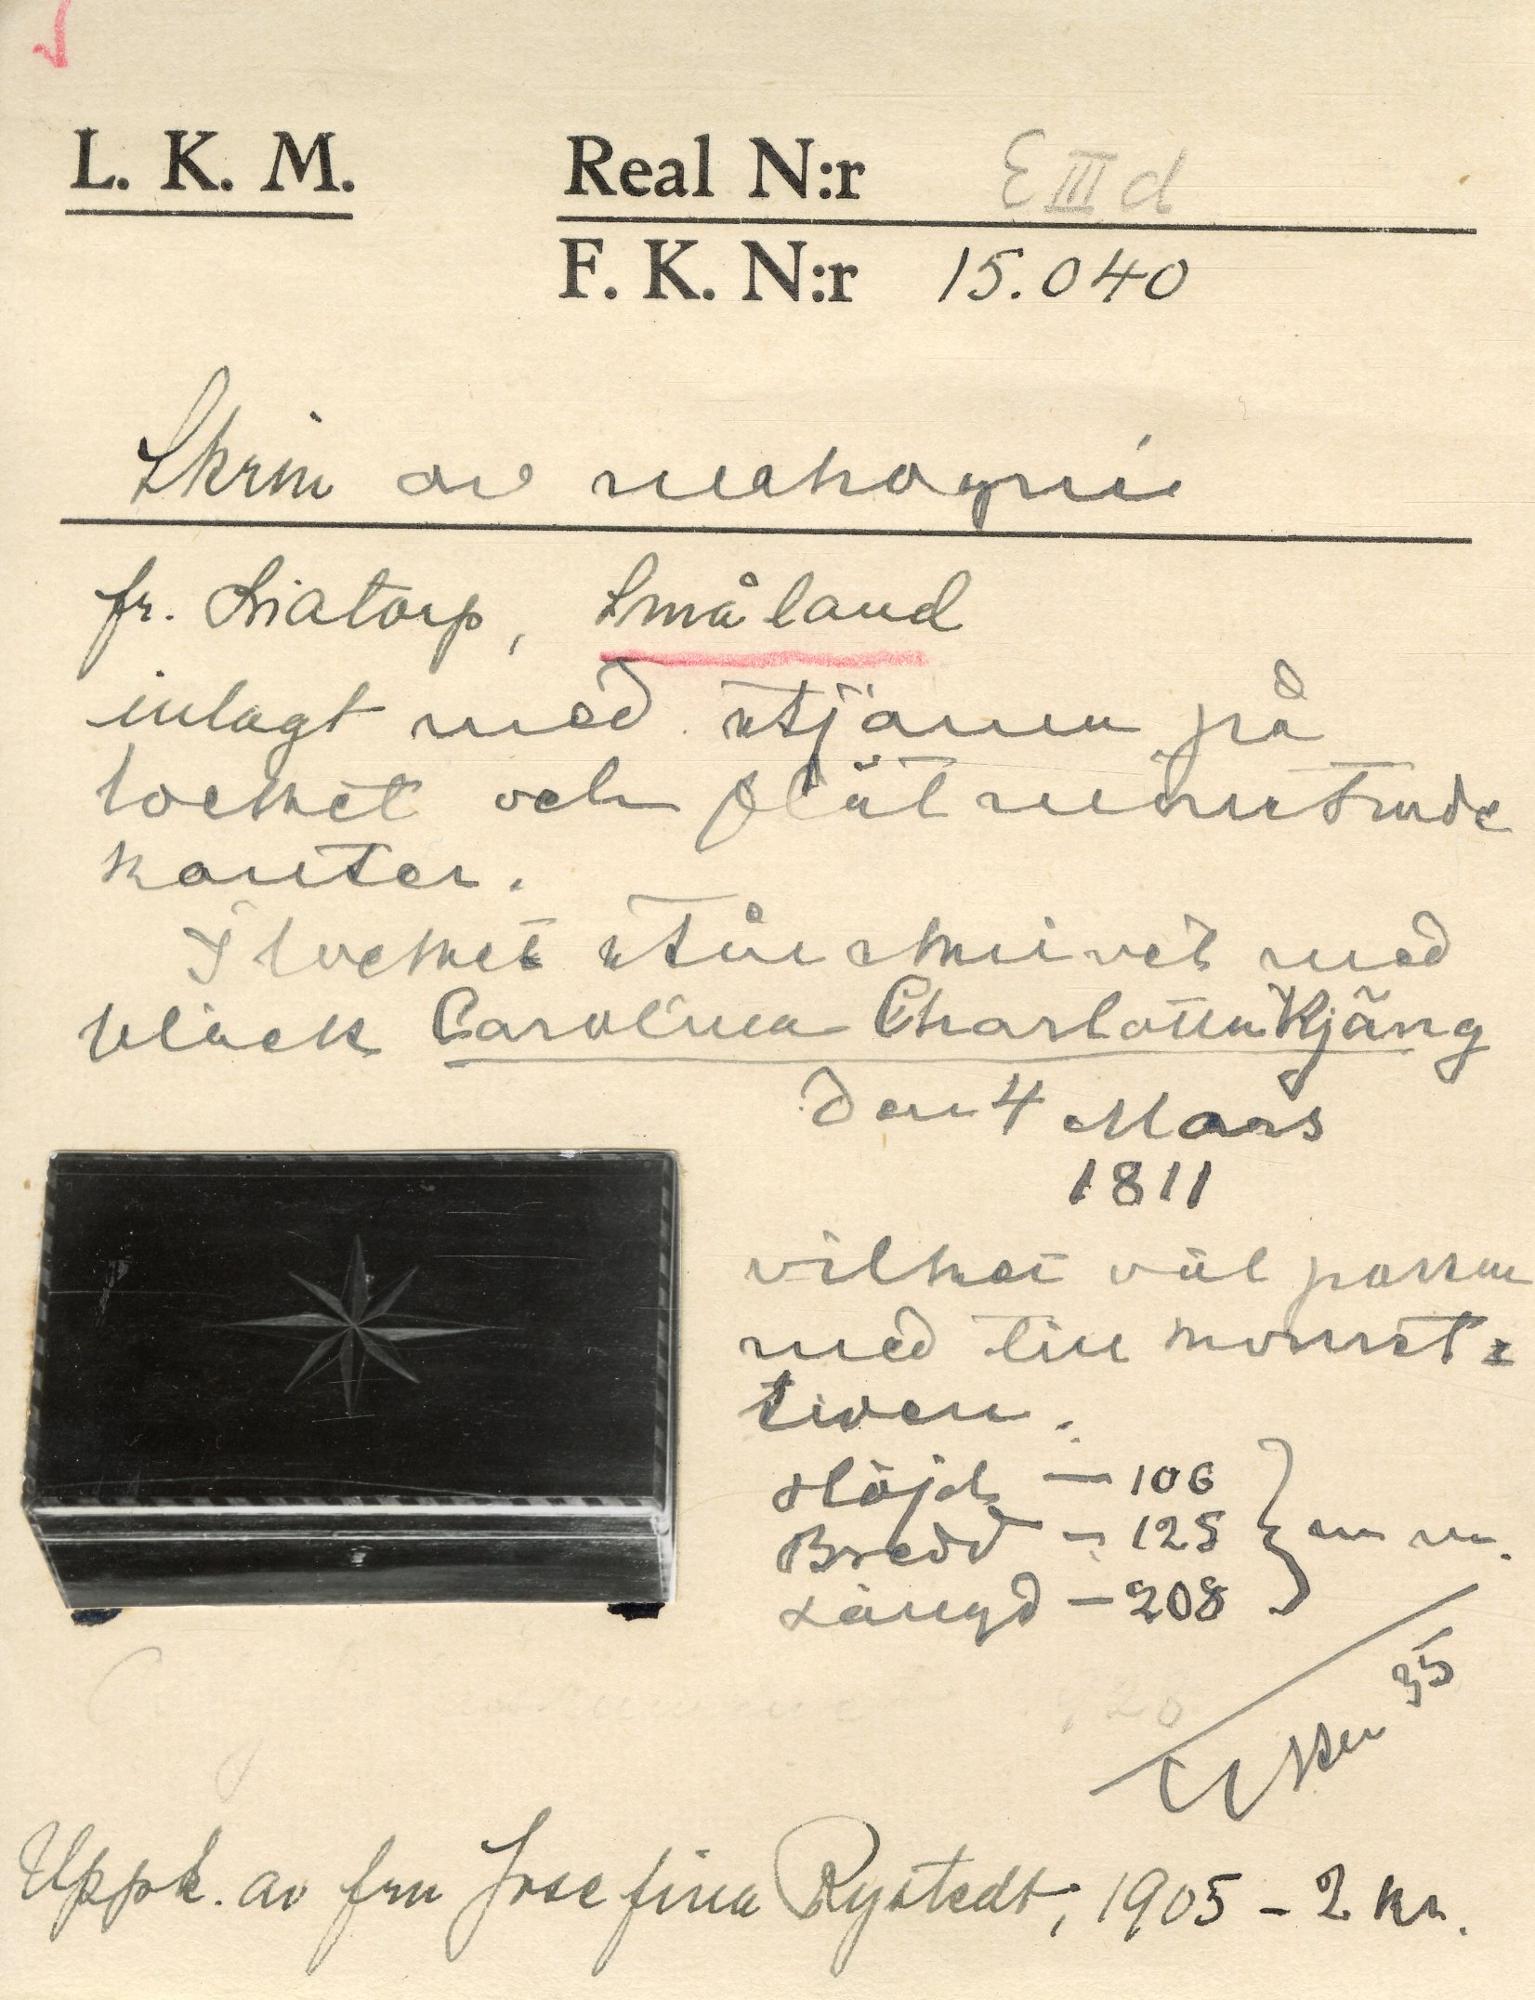 L. K. M.
Real N:r E III d
F. K. N:r 15.040
Skrin av mahogni
fr. Liatorp, Småland
inlagt med stjärna på
locket och flätmönstrade
kanter.
I locket står skrivet med
bläck Carolina Charlotta Kjäng
den 4 Mars
1811
vilket väl passar
med till konst-
tiven.
Höjd — 106
Bredd — 125 } m m.
Längd — 208
35
Uppk. av fru Josefina Rystedt, 1905 – 2 kr.